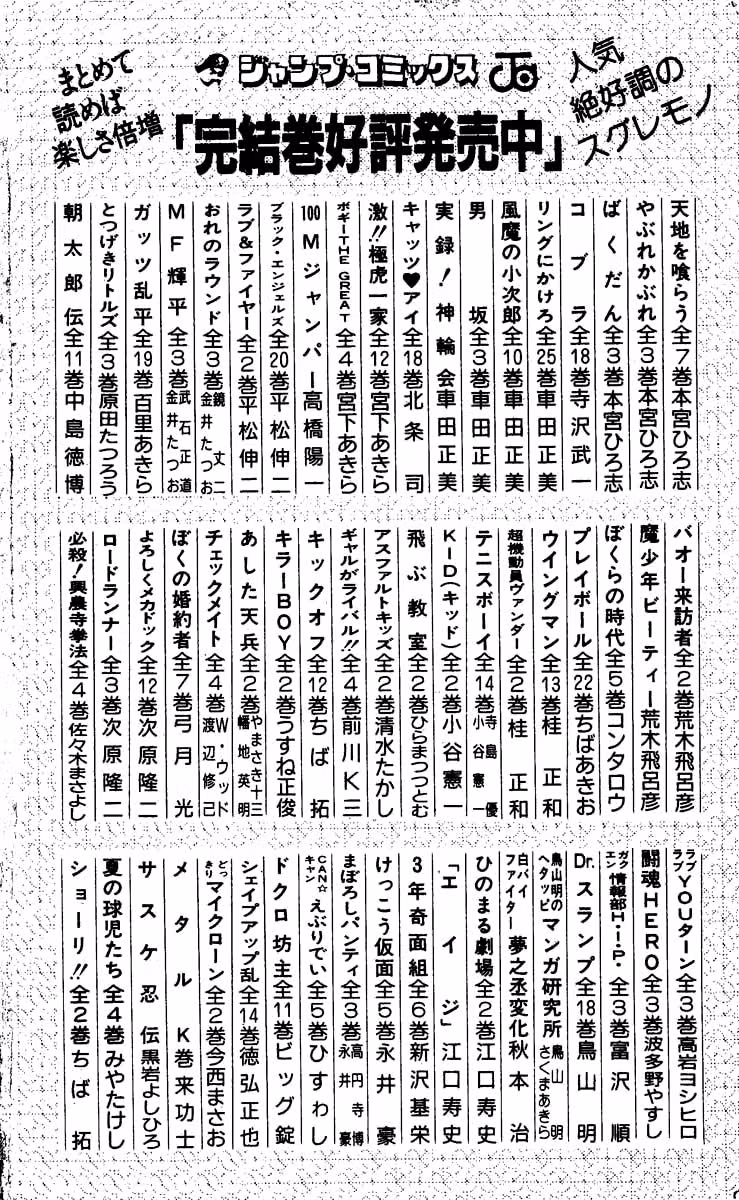 人気
絶好調の
スグレモノ
ジャンプ・コミックス
「完結巻好評発売中」
まとめて
読めば
楽しさ倍増
天地を喰らう全7巻本宮ひろ志
やぶれかぶれ全3巻本宮ひろ志
ばくだん全3巻本宮ひろ志
コブラ全18巻寺沢武一
リングにかけろ全25巻車田正美
風魔の小次郎全10巻車田正美
男坂全3巻車田正美
実録!神輪会車田正美
キャッツ♥アイ全18巻北条司
激!!極虎一家全12巻宮下あきら
ボギーTHE GREAT全4巻宮下あきら
100Mジャンパー高橋陽一
ブラック・エンジェルズ全20巻平松伸二
ラブ&ファイヤー全2巻平松伸二
おれのラウンド全3巻鏡丈二 金井たつお
MF輝平全3巻武石正道 金井たつお
ガッツ乱平全19巻百里あきら
とつげきリトルズ全3巻原田たつろう
朝太郎伝全11巻中島徳博
バオー来訪者全2巻荒木飛呂彦
魔少年ビーティー荒木飛呂彦
ぼくらの時代全5巻コンタロウ
プレイボール全22巻ちばあきお
ウイングマン全13巻桂正和
超機動員ヴァンダー全2巻桂正和
テニスボーイ全14巻寺島優 小谷憲一
KID(キッド)全2巻小谷憲一
飛ぶ教室全2巻ひらまつつとむ
アスファルトキッズ全2巻清水たかし
ギャルがライバル!!全4巻前川K三
キックオフ全12巻ちば拓
キラーBOY全2巻うすね正俊
あした天兵全2巻やまさき十三 幡地英明
チェックメイト全4巻W・ウッド 渡辺修己
ぼくの婚約者全7巻弓月光
よろしくメカドック全12巻次原隆二
ロードランナー全3巻次原隆二
必殺!興農寺拳法全4巻佐々木まさよし
ラブラブYOUターン全3巻高岩ヨシヒロ
闘魂HERO全3巻波多野やすし
ガクエン情報部H・I・P・全3巻富沢順
Dr.スランプ全18巻鳥山明
鳥山明のヘタッピマンガ研究所鳥山明 さくまあきら
白バイファイター夢之丞変化秋本治
ひのまる劇場全2巻江口寿史
「エイジ」江口寿史
3年奇面組全6巻新沢基栄
けっこう仮面全5巻永井豪
まぼろしパンティ全3巻高円寺博 永井豪
CAN☆キャンえぶりでい全5巻ひすゎし
ドクロ坊主全11巻ビッグ錠
シェイプアップ乱全14巻徳弘正也
どっきりマイクローン全2巻今西まさお
メタルK巻来功士
サスケ忍伝黒岩よしひろ
夏の球児たち全4巻みやたけし
ショーリ!!全2巻ちば拓